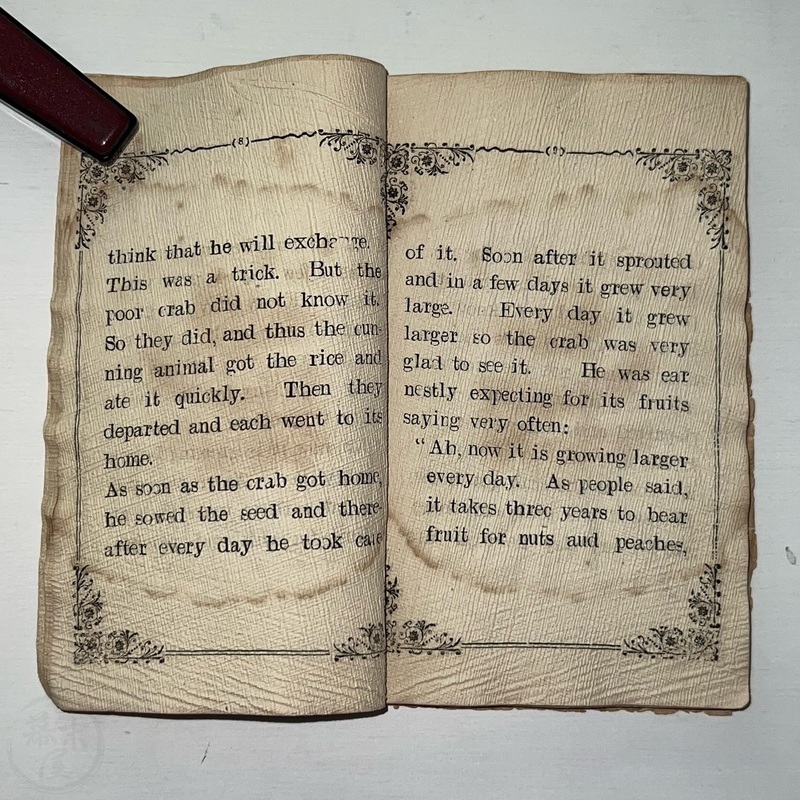 (8)
think that he will exchange.
This was a trick. But the
poor crab did not know it.
So they did, and thus the cun-
ning animal got the rice and
ate it quickly. Then they
departed and each went to its
home.
As soon as the crab got home,
he sowed the seed and there-
after every day he took care
(9)
of it. Soon after it sprouted
and in a few days it grew very
large. Every day it grew
larger so the crab was very
glad to see it. He was ear
nestly expecting for its fruits
saying very often:
“Ah, now it is growing larger
every day. As people said,
it takes three years to bear
fruit for nuts aud peaches,